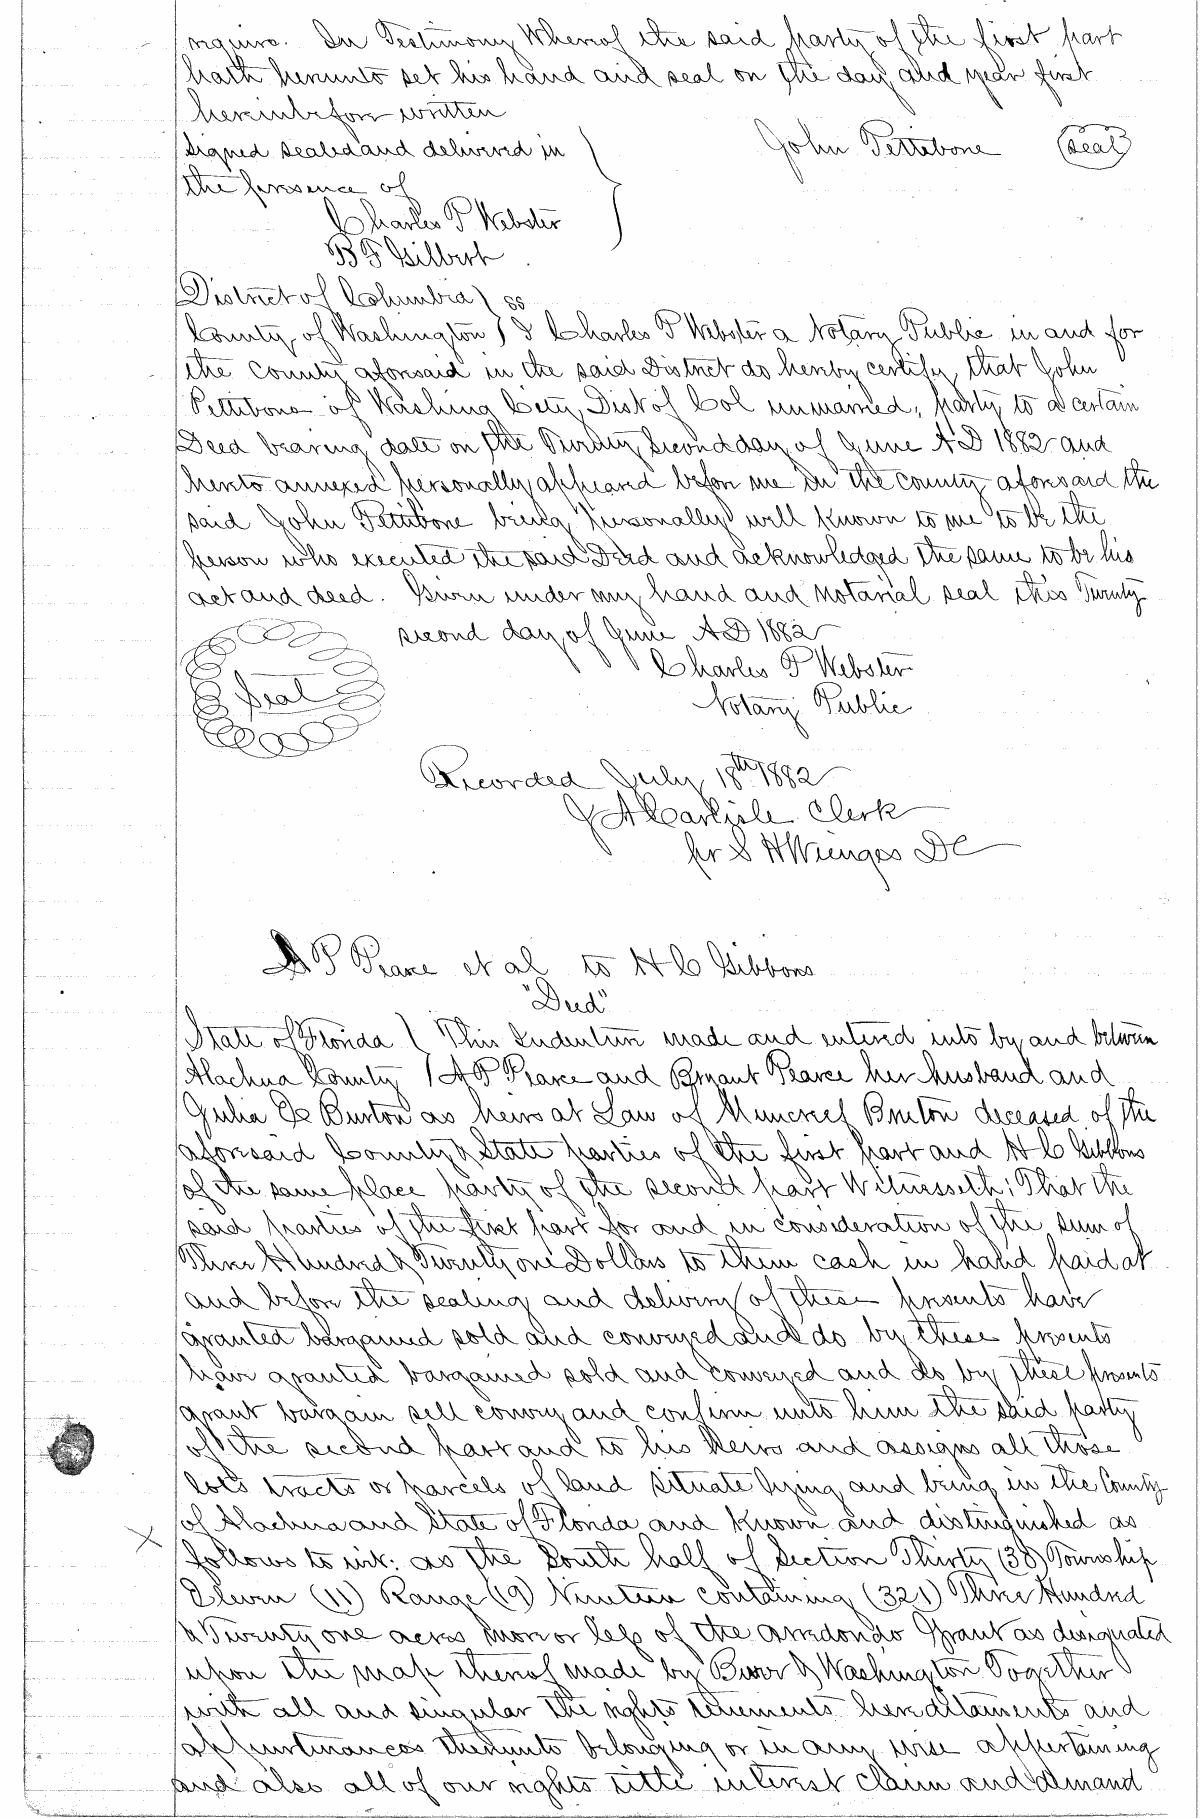 require. In Testimony Whereof the said party of the first part
hath hereunto set his hand and seal on the day and year first
hereinbefore written
Signed sealed and delivered in
the presence of
John Pettibone (Seal)
Charles P Webster
B F Gilbert
District of Columbia } ss
County of Washington } I Charles P Webster a Notary Public in and for
the County aforesaid in the said District do hereby certify that John
Pettibone of Washing City Dist of Col unmarried, party to a certain
Deed bearing date on the Twenty Second day of June A D 1882 and
hereto annexed personally appeared before me in the county aforesaid the
said John Pettibone being personally well known to me to be the
person who executed the said Deed and acknowledged the same to be his
act and deed. Given under my hand and notarial seal this Twenty
second day of June A D 1882
Seal
Charles P Webster
Notary Public
Recorded July 18th 1882
J A Carlisle Clerk
pr S H Wienges D C
A P Pearce et al to H C Gibbons
"Deed"
State of Florida } This Indenture made and entered into by and between
Alachua County } A P Pearce and Bryant Pearce her husband and
Julia E Burton as heirs at Law of Muncrief Bruton deceased of the
aforesaid County & State parties of the first part and H C Gibbons
of the same place party of the second part Witnesseth; That the
said parties of the first part for and in consideration of the sum of
Three Hundred & Twenty one Dollars to them cash in hand paid at
and before the sealing and delivery of these presents have
granted bargained sold and conveyed and do by these presents
have granted bargained sold and conveyed and do by these presents
grant bargain sell convey and confirm unto him the said party
of the second part and to his heirs and assigns all those
lots tracts or parcels of land situate lying and being in the County
of Alachua and State of Florida and known and distinguished as
follows to wit: as the South half of Section Thirty (30) Township
Eleven (11) Range (19) Nineteen containing (321) Three Hundred
& Twenty one acres more or less of the Arredondo Grant as designated
upon the map thereof made by Burr & Washington Together
with all and singular the rights tenements hereditaments and
appurtenances thereunto belonging or in any wise appertaining
and also all of our rights title interest claim and demand